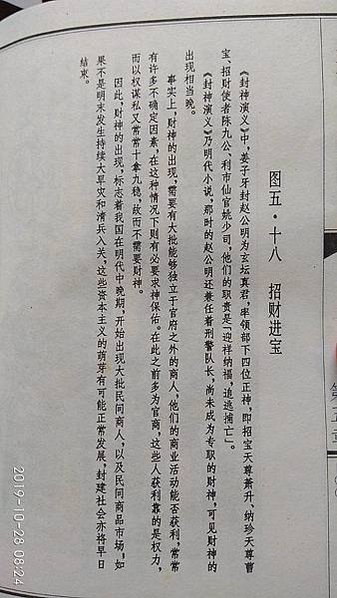 图五·十八 招财进宝
《封神演义》中，姜子牙封赵公明为玄坛真君，率领部下四位正神，即招宝天尊萧升、纳珍天尊曹
宝、招财使者陈九公、利市仙官姚少司，他们的职责是「迎祥纳福，追逃捕亡」。
《封神演义》乃明代小说，那时的赵公明还兼任着刑警队长，尚未成为专职的财神，可见财神的
出现相当晚。
事实上，财神的出现，需要有大批能够独立于官府之外的商人，他们的商业活动能否获利，常常
有许多不确定因素，在这种情况下则有必要求神保佑。在此之前多为官商，这些人获利靠的是权力，
而以权谋私又常常十拿九稳，故而不需要财神。
因此，财神的出现，标志着我国在明代中晚期，开始出现大批民间商人，以及民间商品市场，如
果不是明末发生持续大旱灾和清兵入关，这些资本主义的萌芽有可能正常发展，封建社会亦将早日
结束。
2019-10-28 08:24